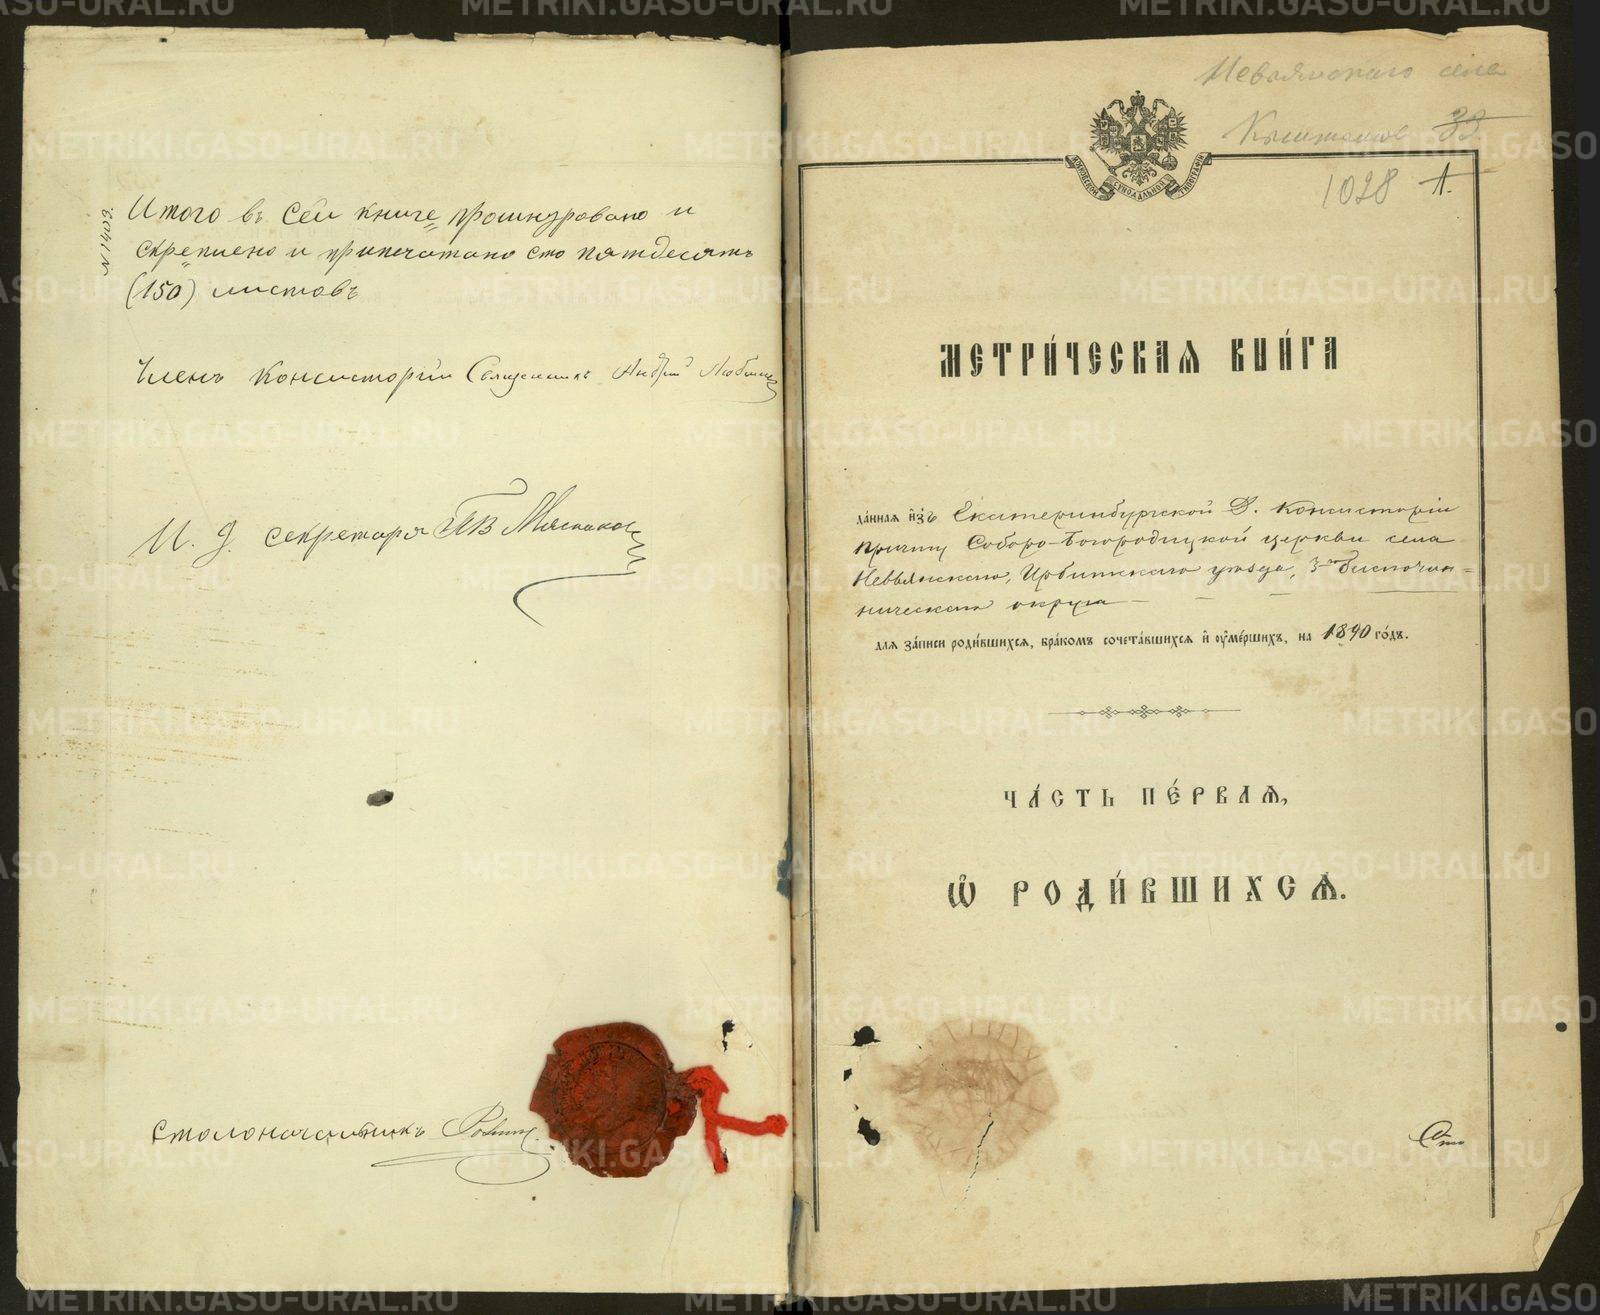 № 1403.
Итого въ сей книге прошнуровано и
скреплено и припечатано сто пятдесятъ
(150) листовъ
Членъ Консисторіи Священникъ Андрей
И. д. секретаря
Столоначальникъ
Невьянскаго села
1028 1.
МОСКОВСКОЙ СѴНОДАЛЬНОЙ ТИПОГРАФІИ
МЕТРИ́ЧЕСКАЯ КНИ́ГА
да́нная и҆зъ Екатеринбургской Д. Консисторіи
причту Соборо-Богородицкой церкви села
Невьянскаго, Ирбитскаго уѣзда, 3го благочин=
ническаго округа
для за́писи роди́вшихся, бра́комъ сочета́вшихся и҆ оу҆ме́ршихъ, на 1890 го́дъ.
ЧА́СТЬ ПЕ́РВАЯ,
Ѽ РОДИ́ВШИХСЯ.
Сто
METRIKI.GASO-URAL.RU